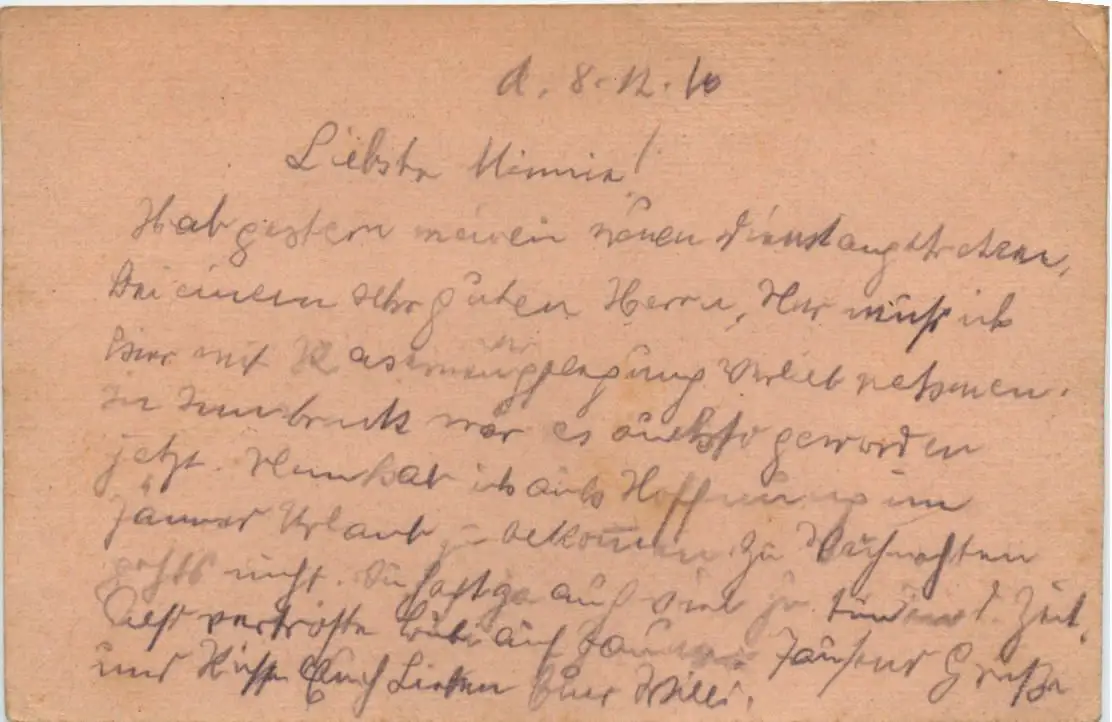 d. 8.12.16
Liebste Minnie!
Hab gestern meinen neuen Dienst angetreten,
bei einem sehr guten Herrn, Nur muß ich
hier mit Kasernverpflegung Vorlieb nehmen.
In Innsbruck wär es auch so geworden
jetzt. Nun hab ich auch Hoffnung im
Jänner Urlaub zu bekommen. Zu Weihnachten
gehts nicht. Du hast ja auch viel zu tun d. Zeit.
Also vertröste Euch auf Jänner Tausend Grüße
und Küsse Euch Lieben Euer Willi.